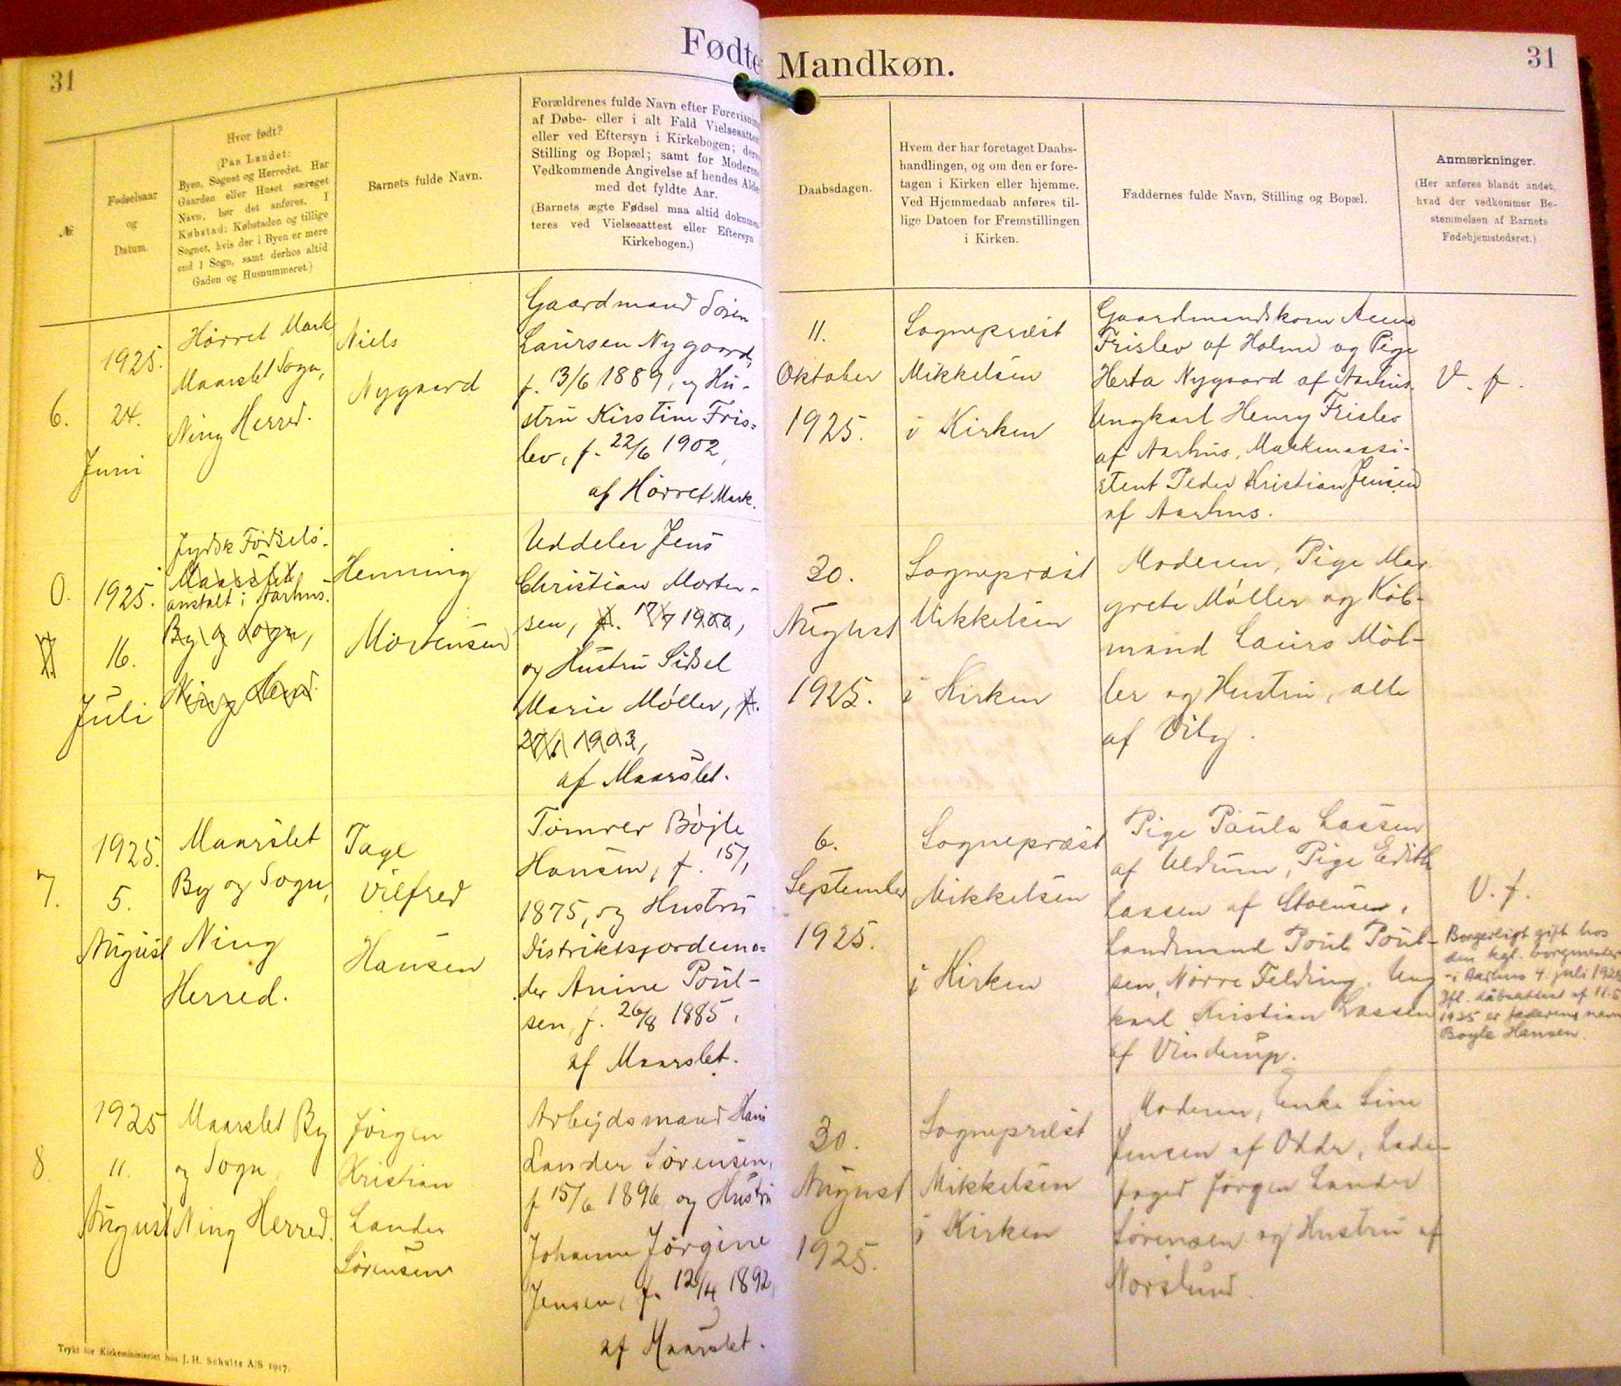 31
Fødte
Mandkøn.
31
№
Fødselsaar
og
Datum.
Hvor født?
(Paa Landet:
Byen, Sognet og Herredet. Har
Gaarden eller Huset særeget
Navn, bør det anføres. I
Købstad: Købstaden og tillige
Sognet, hvis der i Byen er mere
end 1 Sogn, samt derhos altid
Gaden og Husnummeret.)
Barnets fulde Navn.
Forældrenes fulde Navn efter Forevisning
af Døbe- eller i alt Fald Vielsesattest
eller ved Eftersyn i Kirkebogen; deres
Stilling og Bopæl; samt for Moderens
Vedkommende Angivelse af hendes Alder
med det fyldte Aar.
(Barnets ægte Fødsel maa altid dokumen
teres ved Vielsesattest eller Eftersyn
Kirkebogen.)
Daabsdagen.
Hvem der har foretaget Daabs-
handlingen, og om den er fore-
tagen i Kirken eller hjemme.
Ved Hjemmedaab anføres til-
lige Datoen for Fremstillingen
i Kirken.
Faddernes fulde Navn, Stilling og Bopæl.
Anmærkninger.
(Her anføres blandt andet,
hvad der vedkommer Be-
stemmelsen af Barnets
Fødehjemstedsret.)
6.
1925.
24.
Juni
Hørret Mark
Maarslet Sogn,
Ning Herred.
Niels
Nygaard
Gaardmand Søren
Laursen Nygaard,
f. 13/6 1889, og Hu-
stru Kirstine Fris-
lev, f. 22/6 1902,
af Hørret Mark.
11.
Oktober
1925.
Sognepræst
Mikkelsen
i Kirken
Gaardmandskone Anna
Frislev af Holme og Pige
Herta Nygaard af Aarhus.
Ungkarl Henry Frislev
af Aarhus,
Peder Kristian Jensen
af Aarhus.
V. f.
0.
1925.
16.
Juli
Jydsk Fødsels-
Maarslet
anstalt i Aarhus.
By og Sogn,
Ning Herred.
Henning
Mortensen
Uddeler Jens
Christian Morten-
sen, f. 17/7 1900,
og Hustru Sidsel
Marie Møller, f.
27/1 1903,
af Maarslet.
30.
August
1925.
Sognepræst
Mikkelsen
i Kirken
Moderen, Pige Mar
grete Møller og Køb-
mand Laurs Møl-
ler og Hustru, alle
af Viby.
7.
1925.
5.
August
Maarslet
By og Sogn,
Ning
Herred.
Tage
Vilfred
Hansen
Tømrer Bøjle
Hansen, f. 15/1
1875, og Hustru
Distriktsjordemo-
der Anine Poul-
sen, f. 26/8 1885,
af Maarslet.
6.
September
1925.
Sognepræst
Mikkelsen
i Kirken
Pige Paula Lassen
af Uldum, Pige Edith
Lassen af
Landmand Poul Poul-
sen, Nørre Felding. Ung
karl Kristian Lassen
af Vinderup.
V. f.
Borgerligt gift hos
den kgl. borgmester
i Aarhus 4. juli 192
Ifl. dåbsattest af 11.5
1925 er faderens navn
Boyle Hansen.
8.
1925
11.
August
Maarslet By
og Sogn,
Ning Herred.
Jørgen
Kristian
Lander
Sørensen
Arbejdsmand Hans
Lander Sørensen,
f 15/6 1896, og Hustru
Johanne Jørgine
Jensen, f. 12/4 1892,
af Maarslet.
30.
August
1925.
Sognepræst
Mikkelsen
i Kirken
Moderen, Enke Sine
Jensen af Odder, Lade-
foged Jørgen Lander
Sørensen og Hustru af
Norslund.
Trykt for Kirkeministeriet hos J. H. Schultz A/S 1917.